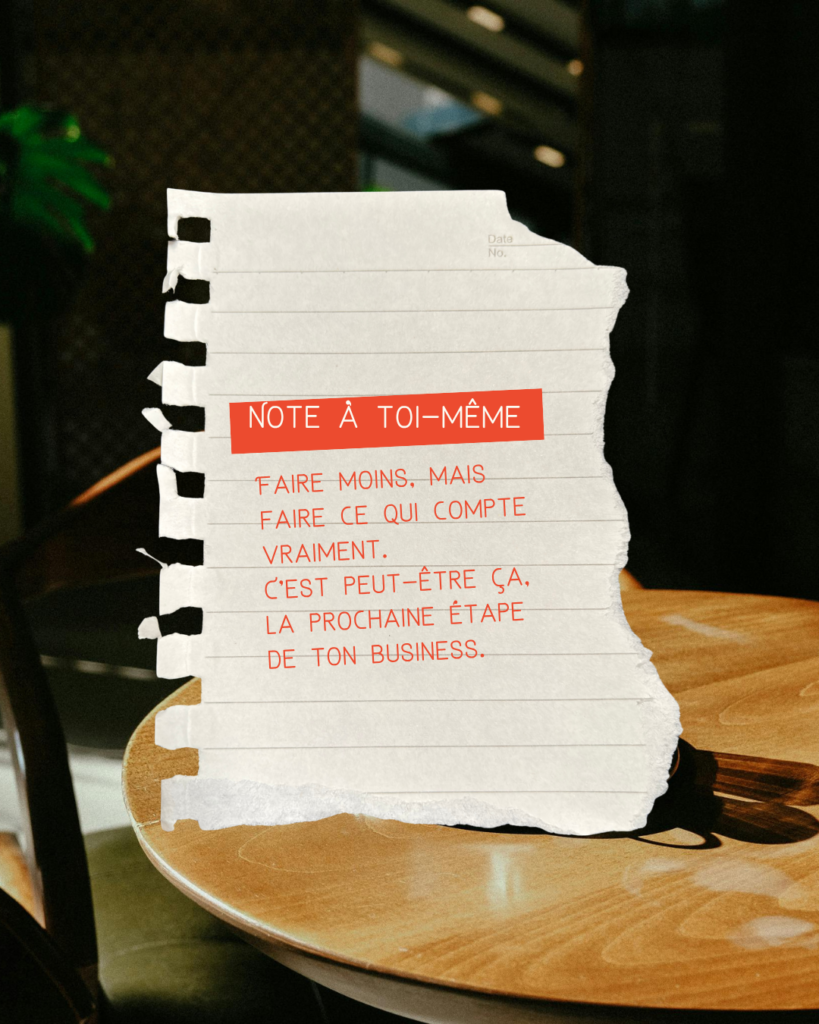 Date
No.
NOTE À TOI-MÊME
FAIRE MOINS, MAIS
FAIRE CE QUI COMPTE
VRAIMENT.
C'EST PEUT-ÊTRE ÇA,
LA PROCHAINE ÉTAPE
DE TON BUSINESS.